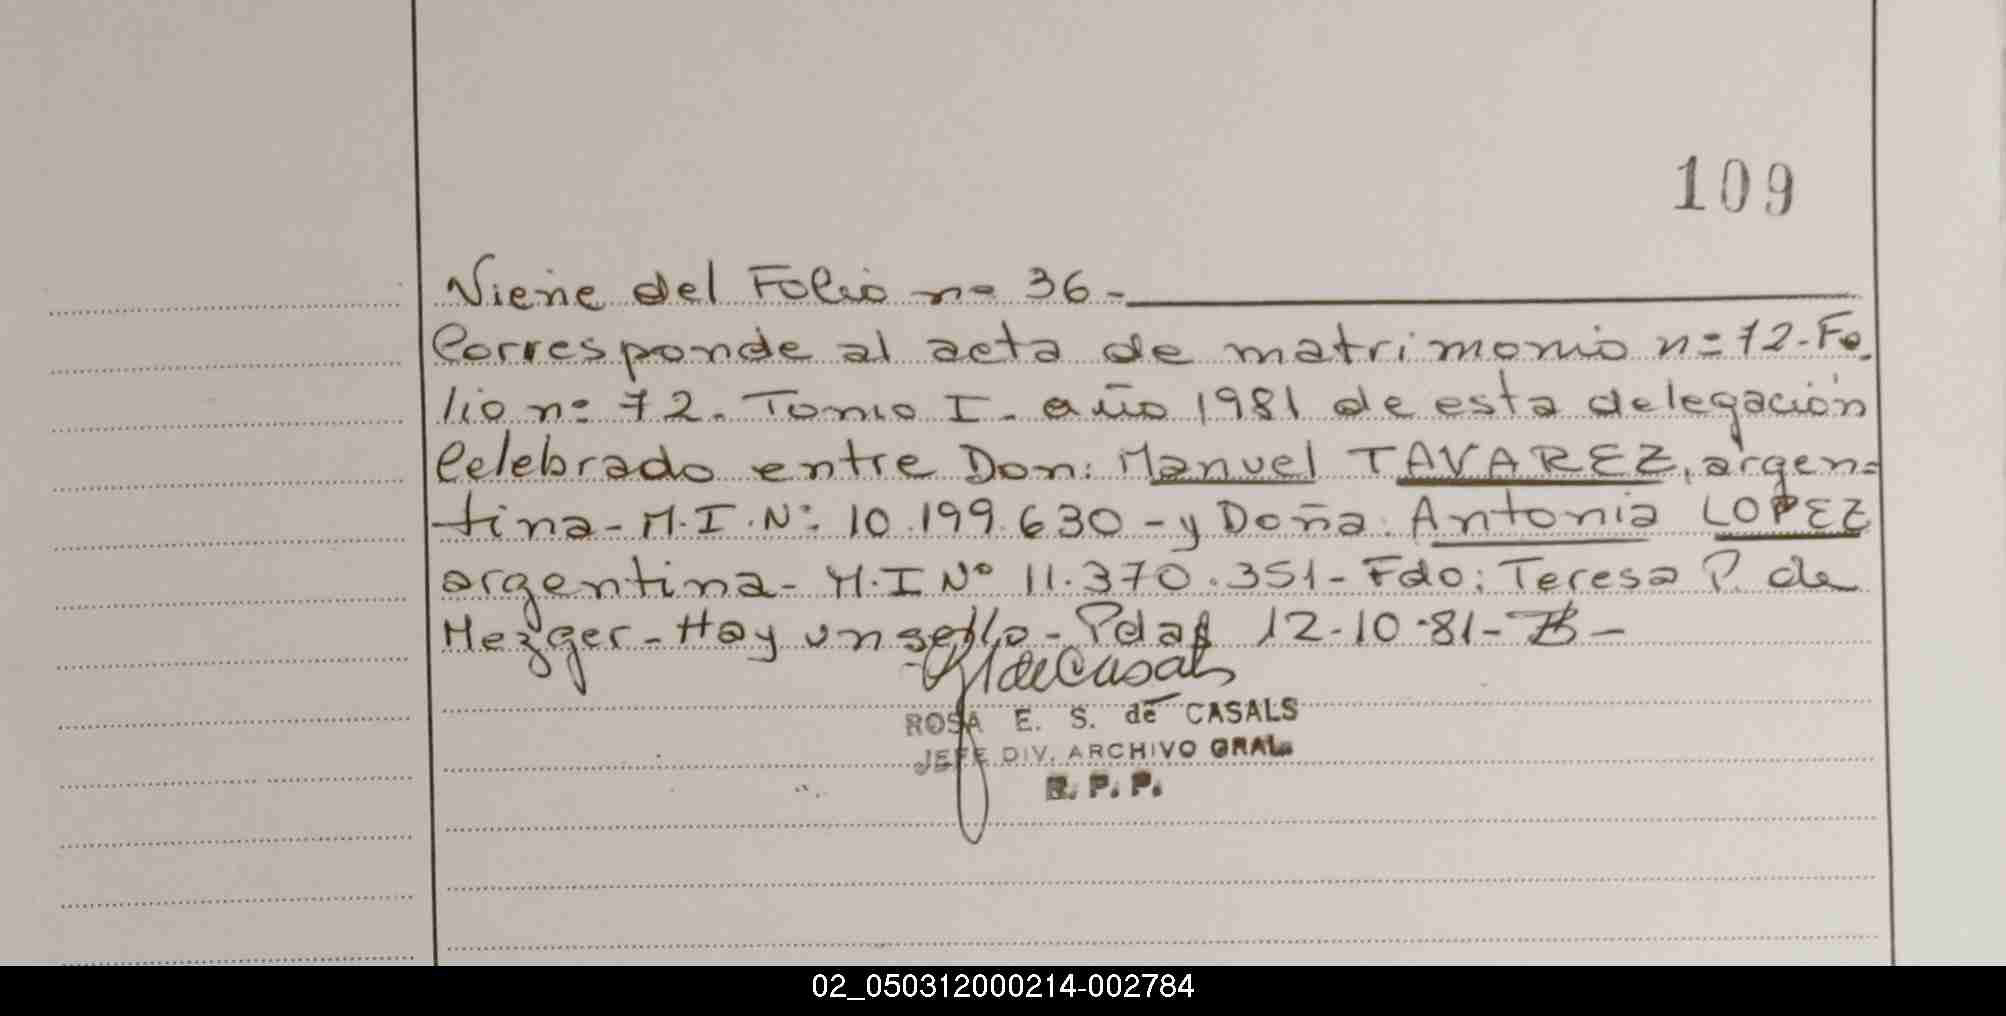 109
Viene del Folio nº 36-
Corresponde al acta de matrimonio nº 72-Fo
lio nº 72. Tomo I. año 1981 de esta delegación
Celebrado entre Don: Manuel TAVAREZ, argen=
tina-M.I.Nº: 10.199.630-y Doña: Antonia LOPEZ
argentina-M.I Nº 11.370.351-Fdo: Teresa P. de
Mezger-Hay un sello-Pdas 12-10-81-
de Casals
ROSA E. S. de CASALS
JEFE DIV. ARCHIVO GRAL.
R. P. P.
02_050312000214-002784